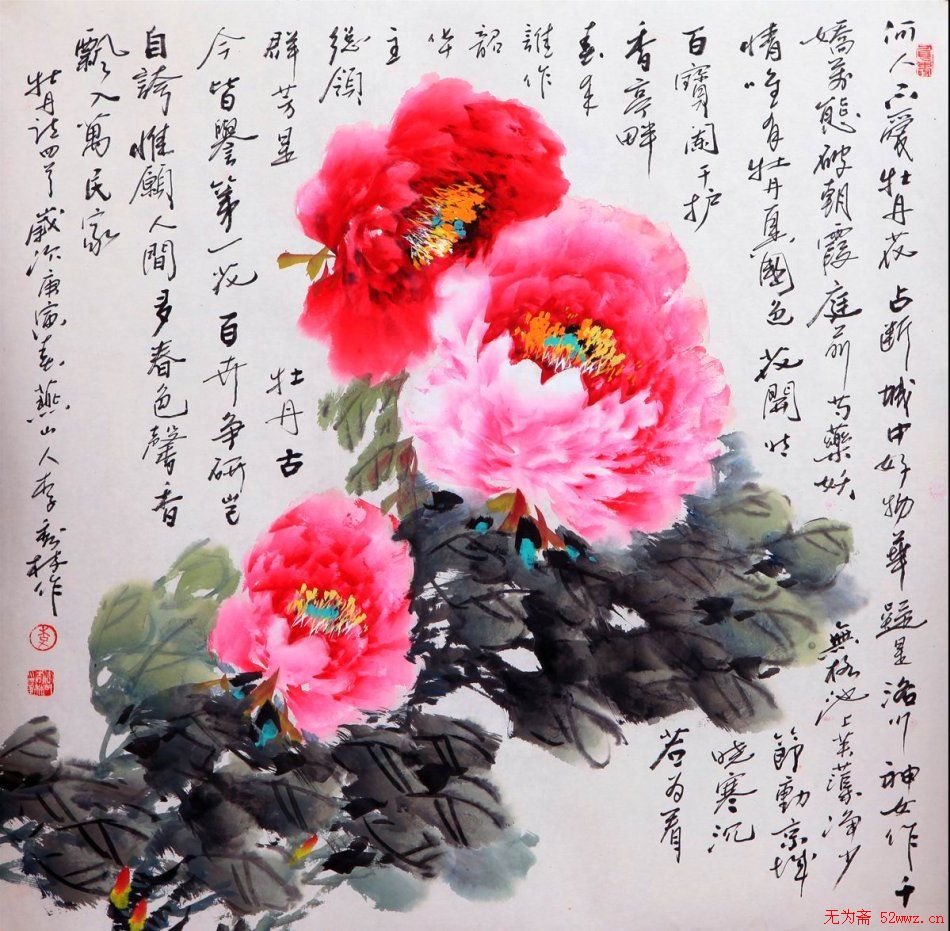 何人不愛牡丹花 占断城中好物華 疑是洛川神女作千
嬌萬態破朝霞 庭前芍藥妖 無格池上芙蕖净少
情唯有牡丹真國色 花開时 節動京城
百寶闌干护 晓寒沉
香亭畔 若为看
春来
誰作
韶
华
主
總領
群芳是 牡丹古
今皆譽第一花 百卉争研岂
自誇惟願人間多春色馨香
飄入萬民家
牡丹诗四首 歲次庚寅春燕山人李 林作
无为斋 52wwz.cn